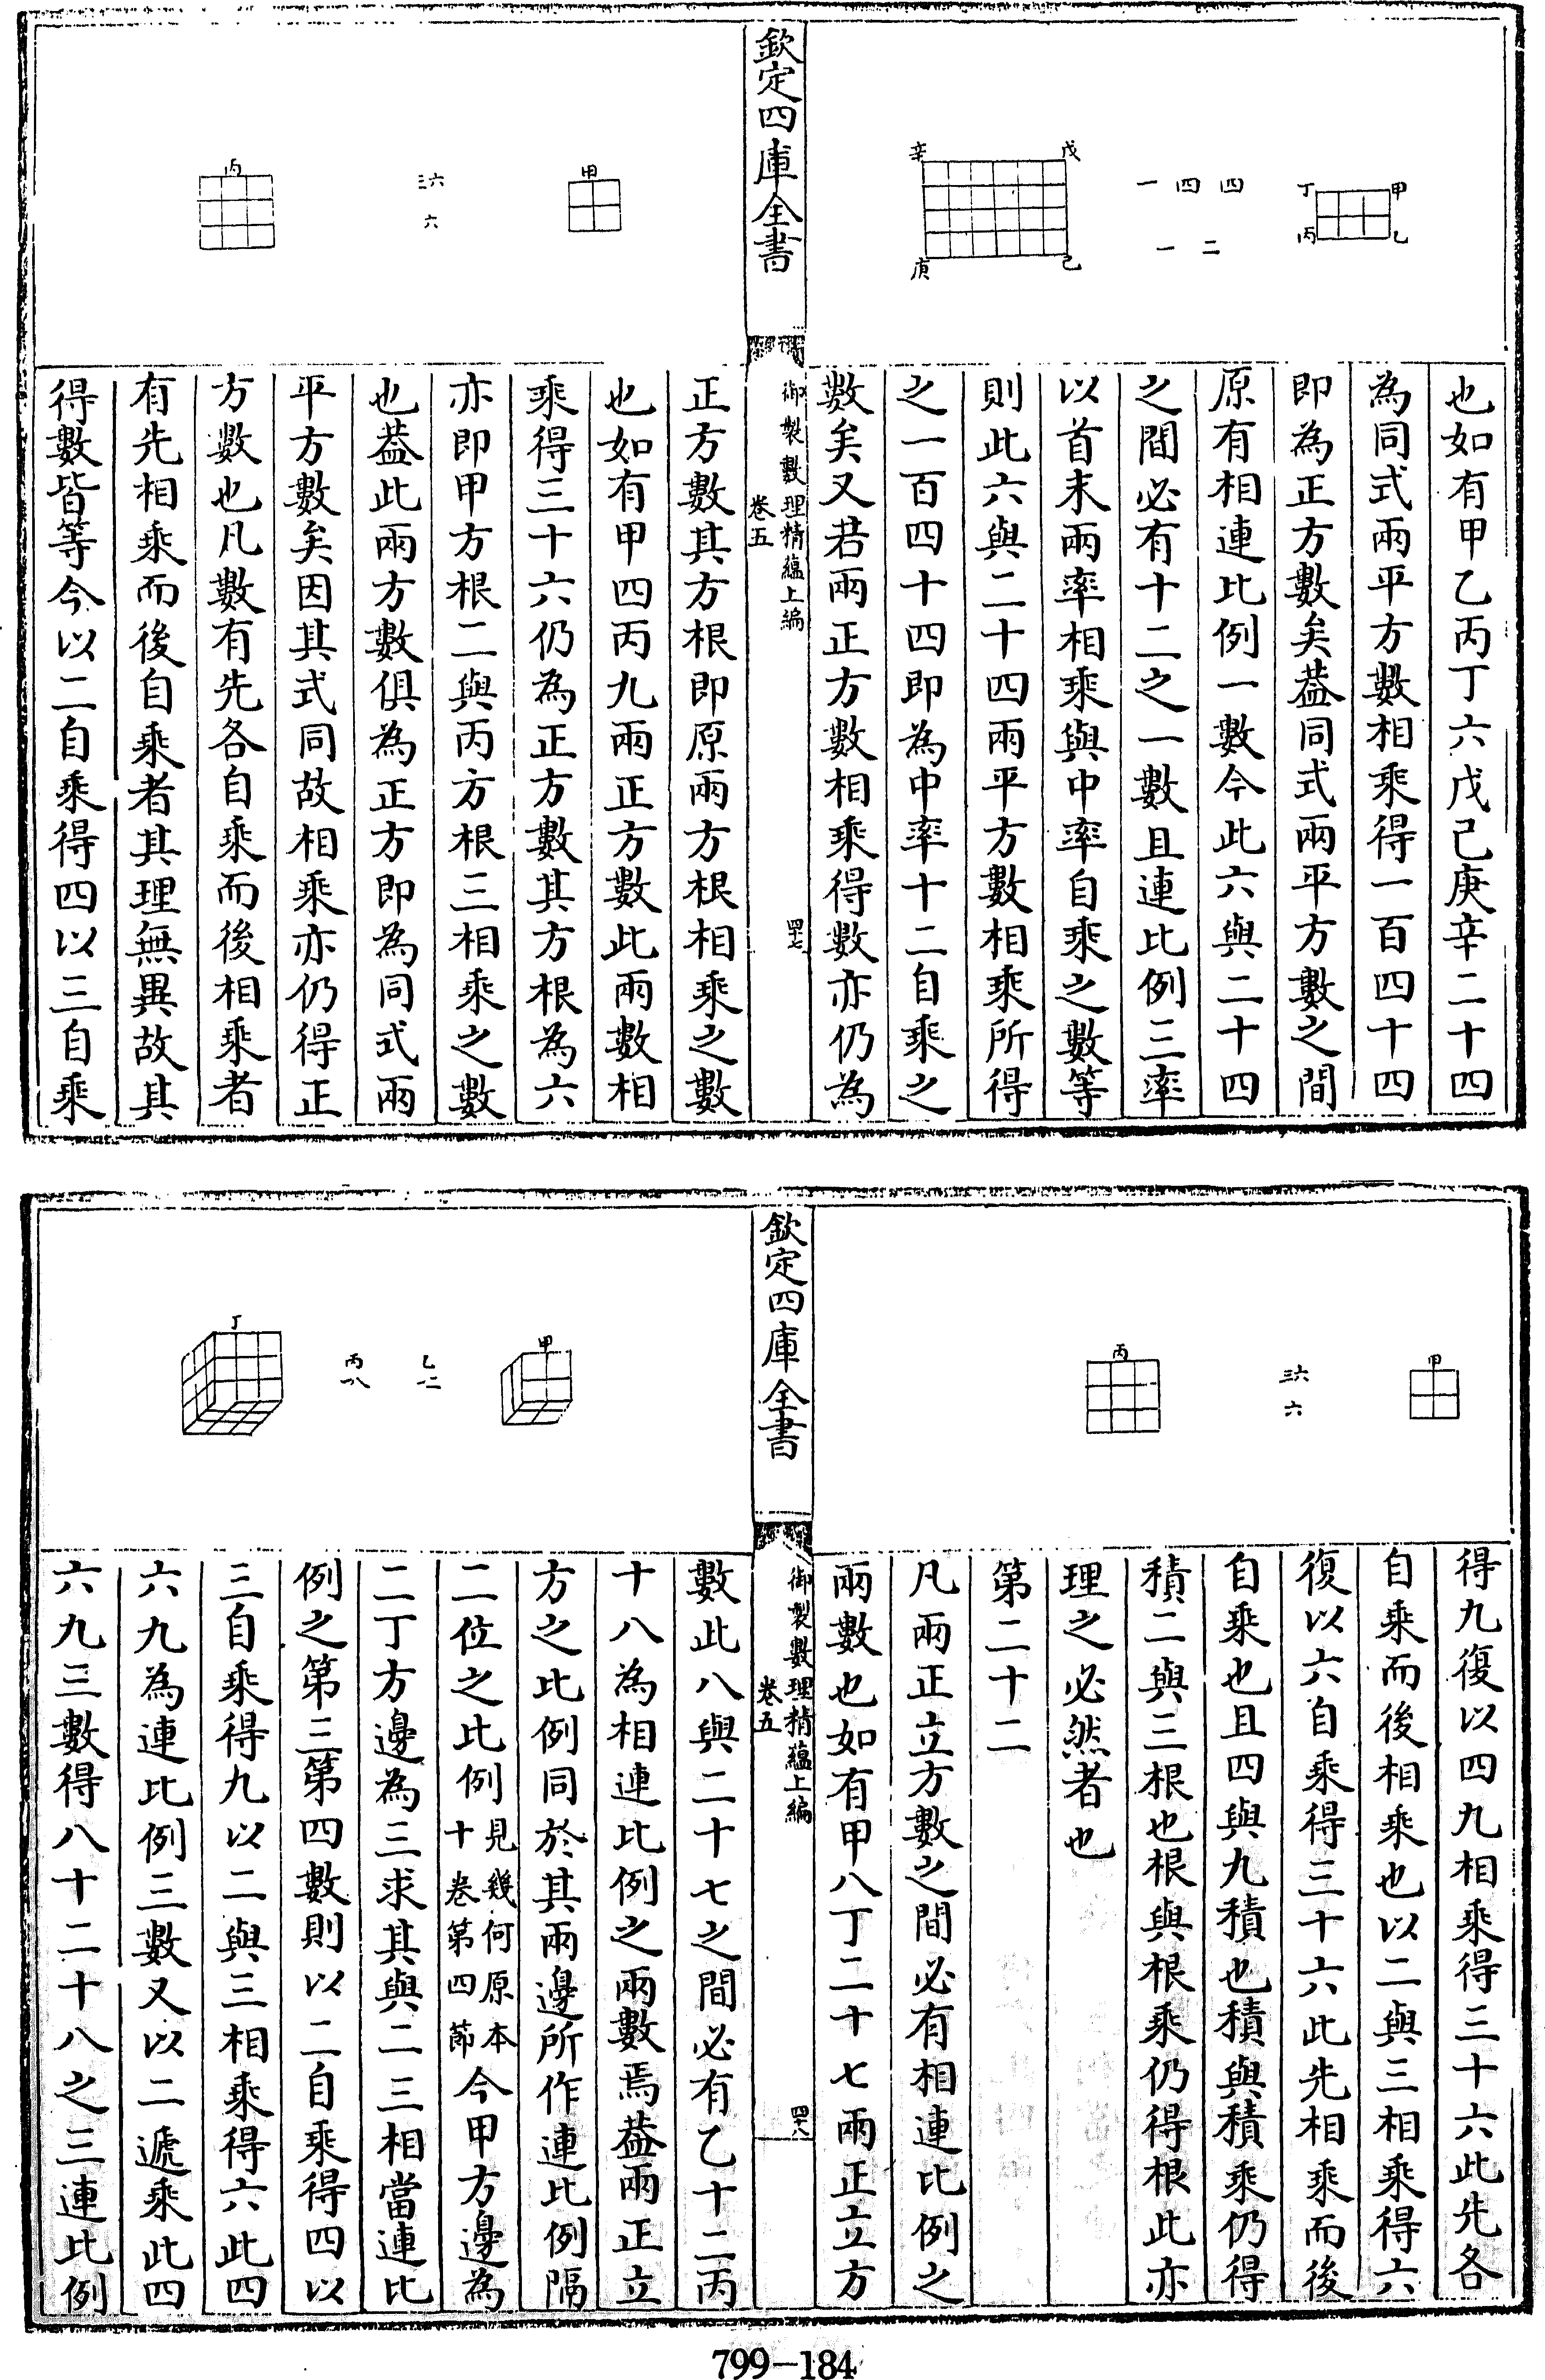 戊
辛
己
庚
四
四
一
二
一
甲
乙
丙
丁
也如有甲乙丙丁六戊己庚辛二十四
為同式兩平方數相乘得一百四十四
即為正方數矣葢同式兩平方數之間
原有相連比例一數今此六與二十四
之間必有十二之一數且連比例三率
以首末兩率相乘與中率自乘之數等
則此六與二十四兩平方數相乘所得
之一百四十四即為中率十二自乘之
數矣又若兩正方數相乘得數亦仍為
欽定四庫全書
御製數理精蘊上編
卷五
四七
甲
三六
六
丙
正方數其方根即原兩方根相乘之數
也如有甲四丙九兩正方數此兩數相
乘得三十六仍為正方數其方根為六
亦即甲方根二與丙方根三相乘之數
也葢此兩方數俱為正方即為同式兩
平方數矣因其式同故相乘亦仍得正
方數也凡數有先各自乘而後相乘者
有先相乘而後自乘者其理無異故其
得數皆等今以二自乘得四以三自乘
甲
三六
六
丙
得九復以四九相乘得三十六此先各
自乘而後相乘也以二與三相乘得六
復以六自乘得三十六此先相乘而後
自乘也且四與九積也積與積乘仍得
積二與三根也根與根乘仍得根此亦
理之必然者也
第二十二
凡兩正立方數之間必有相連比例之
兩數也如有甲八丁二十七兩正立方
欽定四庫全書
御製數理精蘊上編
卷五
四八
甲
乙
一二
丙
一八
丁
數此八與二十七之間必有乙十二丙
十八為相連比例之兩數焉葢兩正立
方之比例同於其兩邊所作連比例隔
二位之比例見幾何原本十卷第四節今甲方邊為
二丁方邊為三求其與二三相當連比
例之第三第四數則以二自乘得四以
三自乘得九以二與三相乘得六此四
六九為連比例三數又以二遞乘此四
六九三數得八十二十八之三連比例
799-184